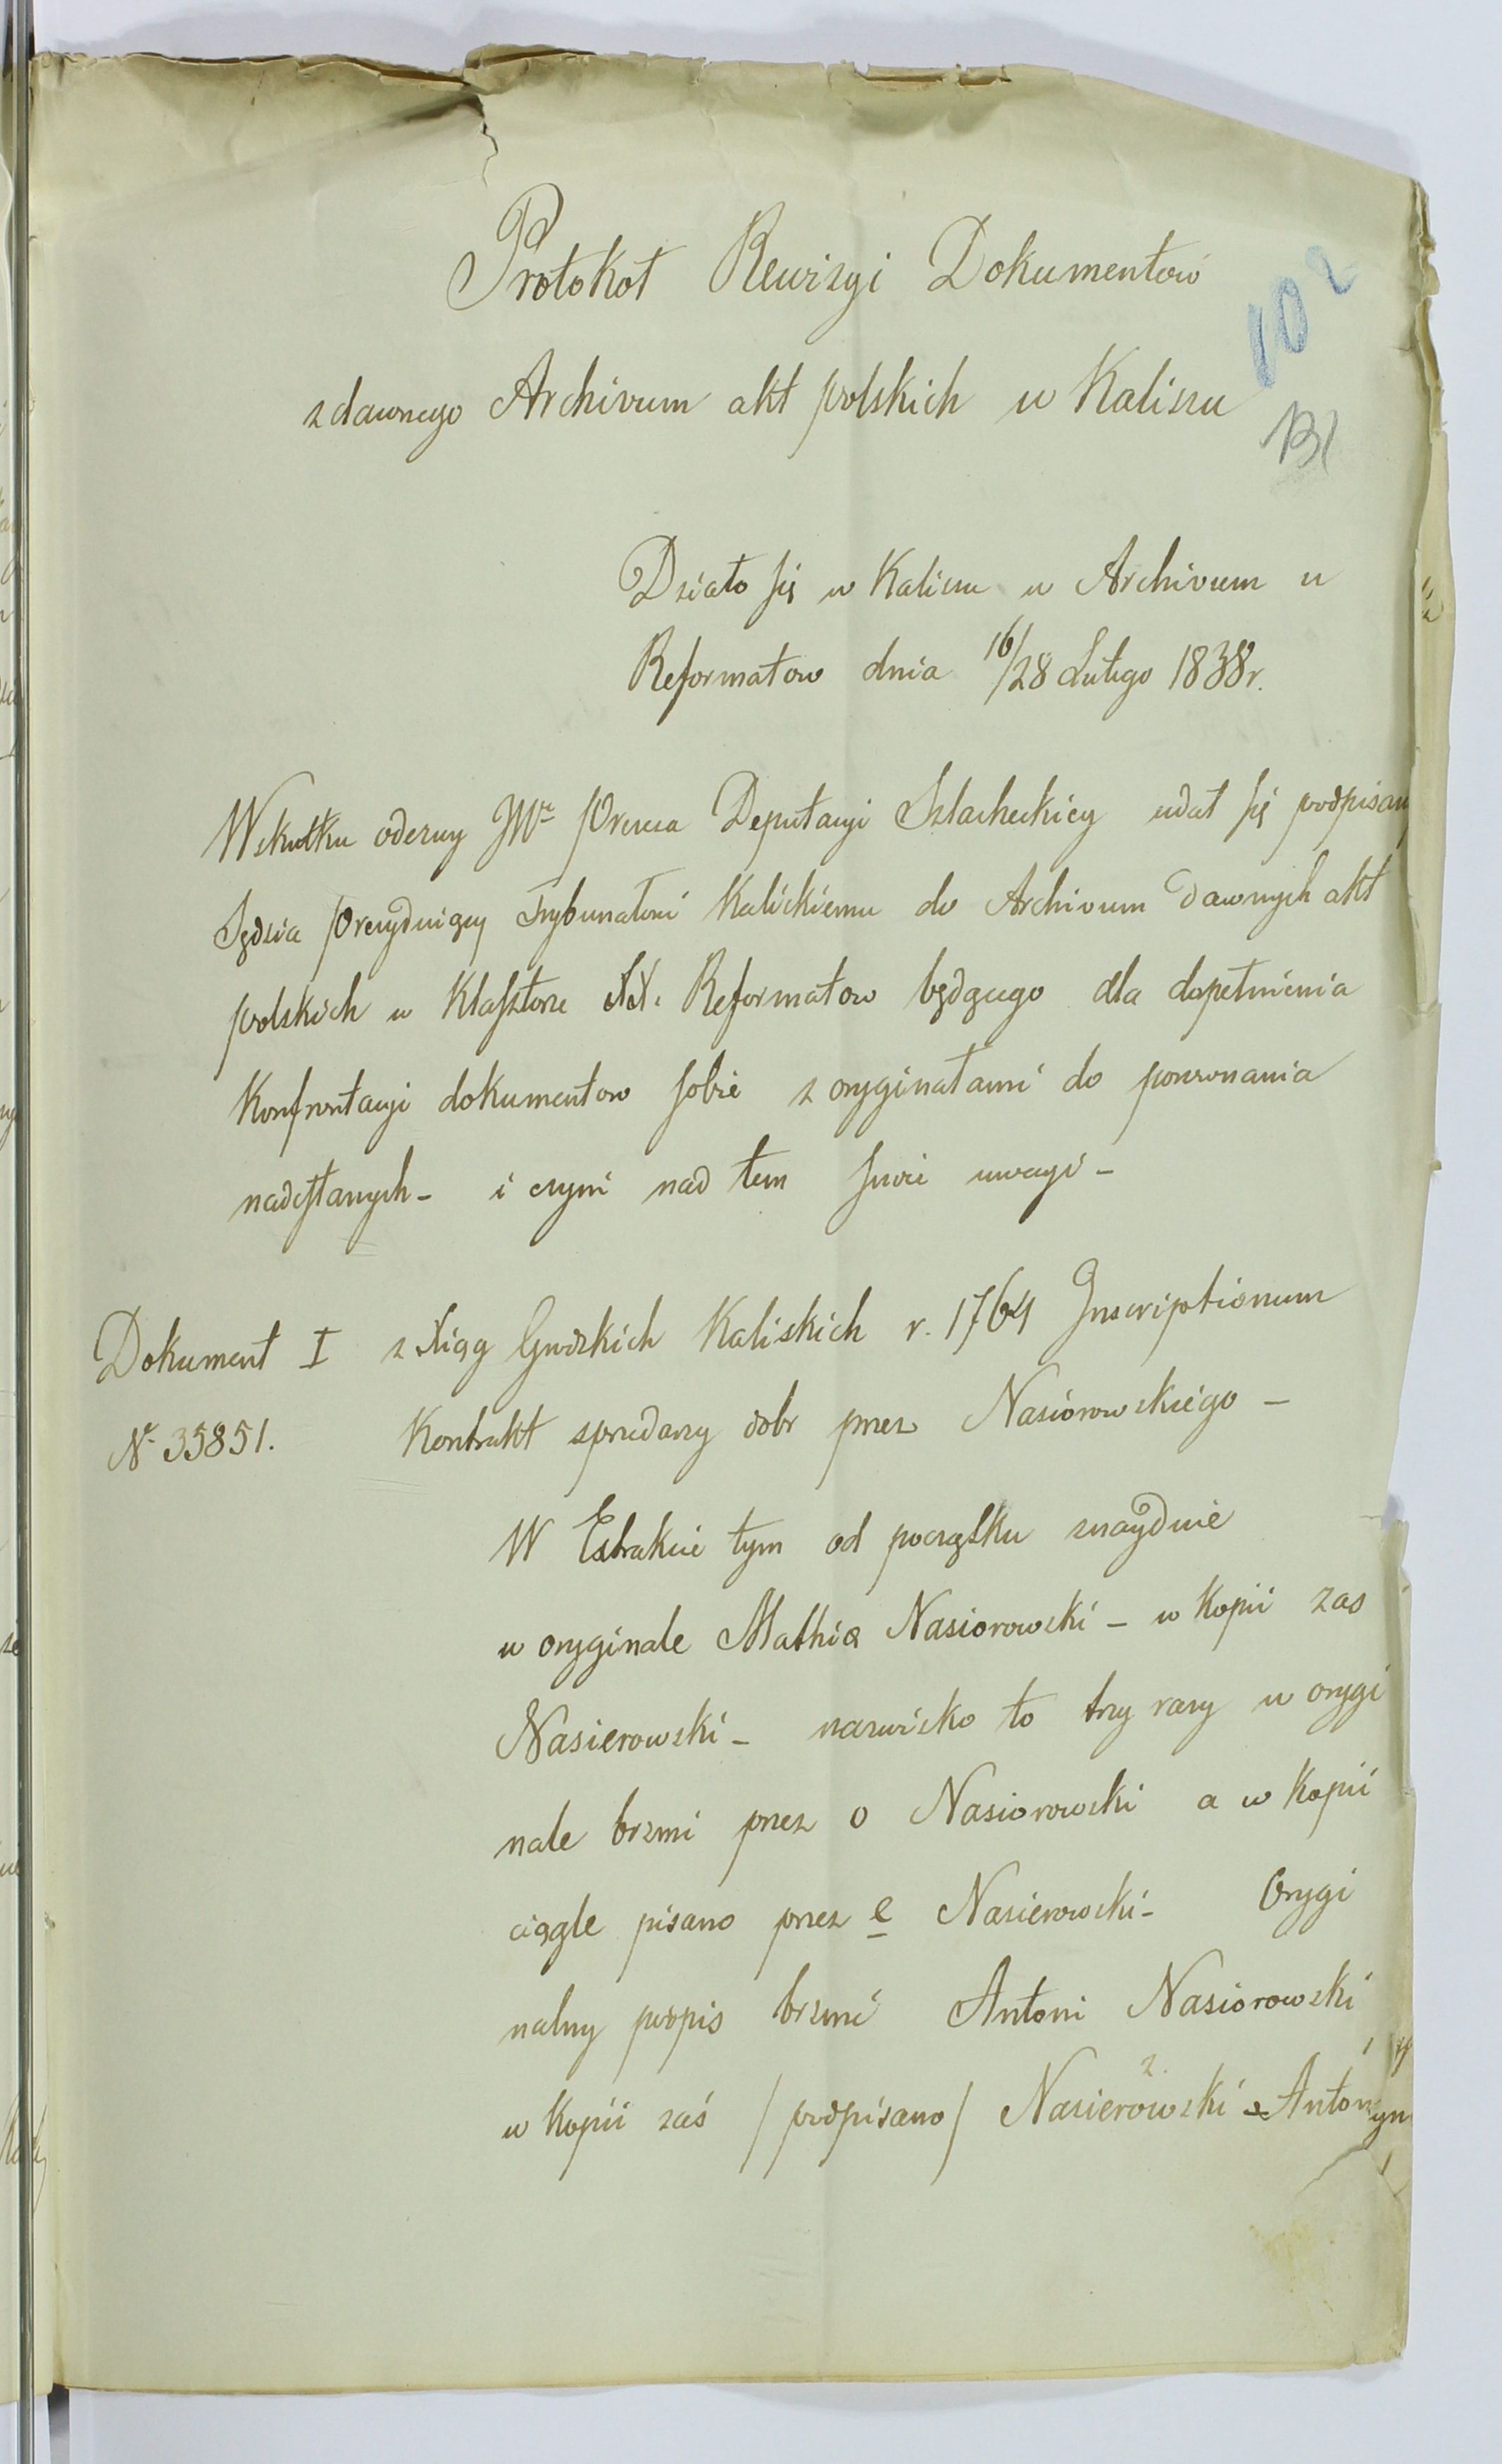 Protokoł Rewizyi Dokumentow
102
z dawnego Archivum akt polskich w Kaliszu
131
Działo się w Kaliszu w Archivum u
Reformatow dnia 16/28 Lutego 1838 r.
Wskutku odezwy JWo Prezesa Deputacyi Szlacheckiey udał się podpisany
Sędzia Prezyduiący Trybunałowi Kaliskiemu do Archivum dawnych akt
polskich w Klasztorze XX. Reformatow będącego dla dopełnienia
Konfrontacyi dokumentow sobie z oryginałami do porownania
nadesłanych - i czyni nad tem swoie uwagi -
Dokument I z Xiąg Grodzkich Kaliskich r. 1764 Inscriptionum
No 35851. Kontrakt sprzedarzy dobr przez Nasiorowskiego -
W Extrakcie tym od początku znayduie
w oryginale Mathia Nasiorowski - w Kopii zas
Nasierowski - nazwisko to trzy razy w orygi
nale brzmi przez o Nasiorowski a w Kopii
ciągle pisano przez e Nasierowski - Orygi
nalny podpis brzmi Antoni Nasiorowski
w Kopii zaś /podpisano/ Nasierowski Antoni